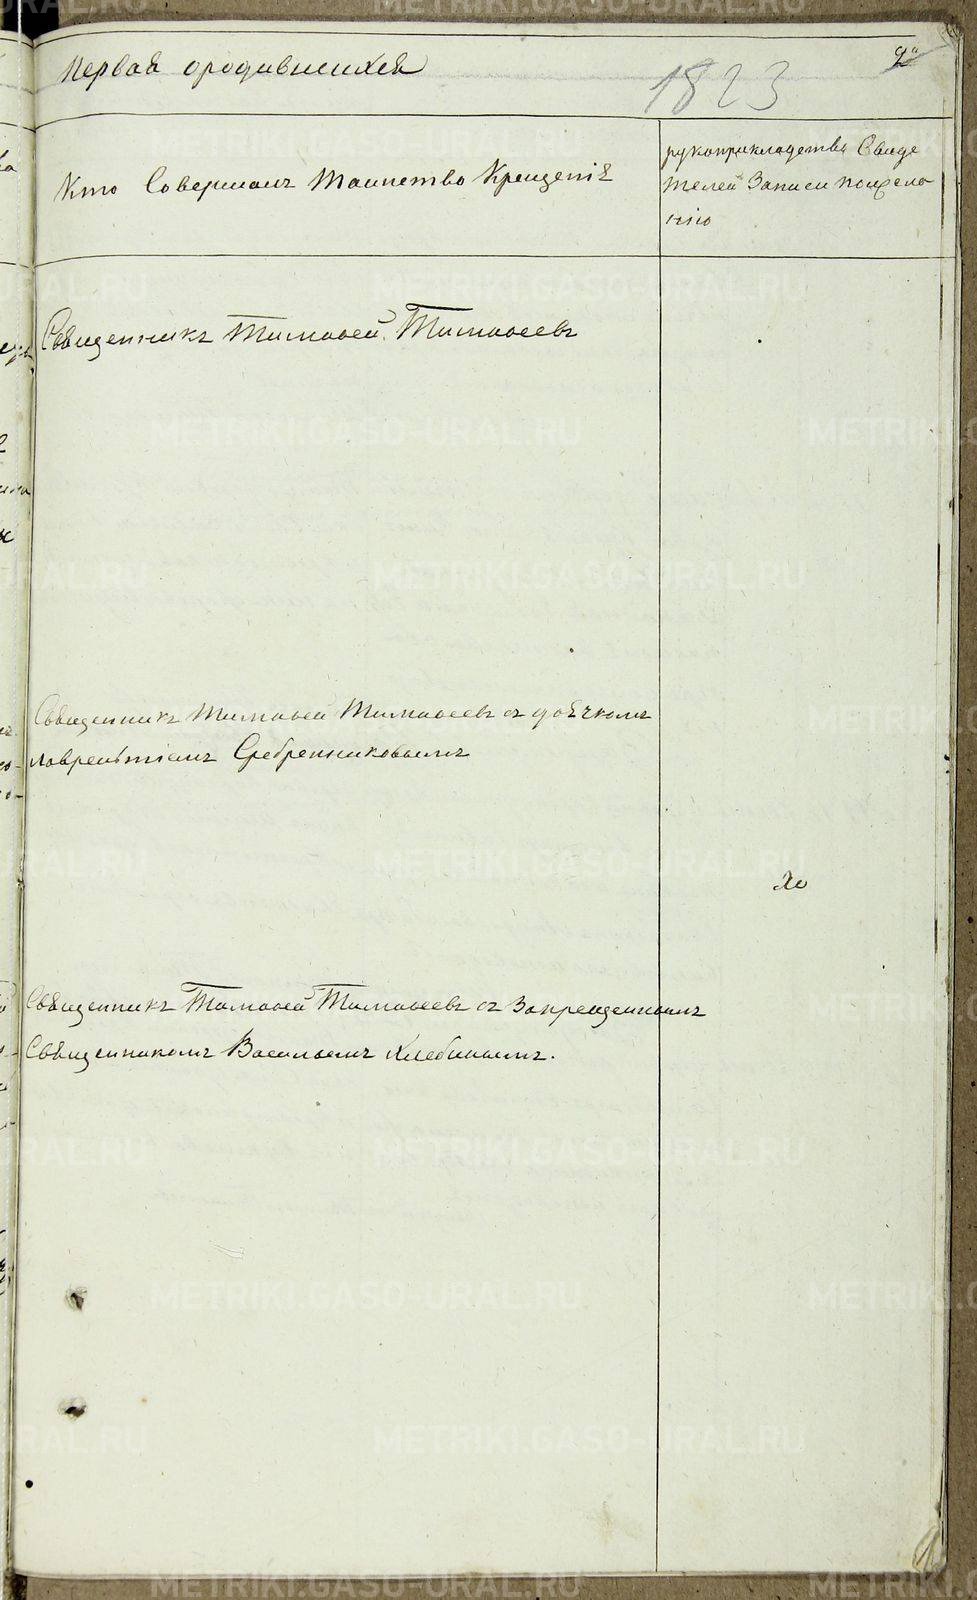 Первая ородившихся
1823
Кто Совершалъ Таинство Крещенiя
рукоприкладство Свиде
телей Записи пожела
нiю
Священникъ Тимофей Тимофеевъ
Священникъ Тимофей Тимофеевъ съ дьячкомъ
Лаврентiемъ Сребренниковымъ
Священникъ Тимофей Тимофеевъ съ Запрещеннымъ
Священникомъ Васильемъ Хлебинымъ.